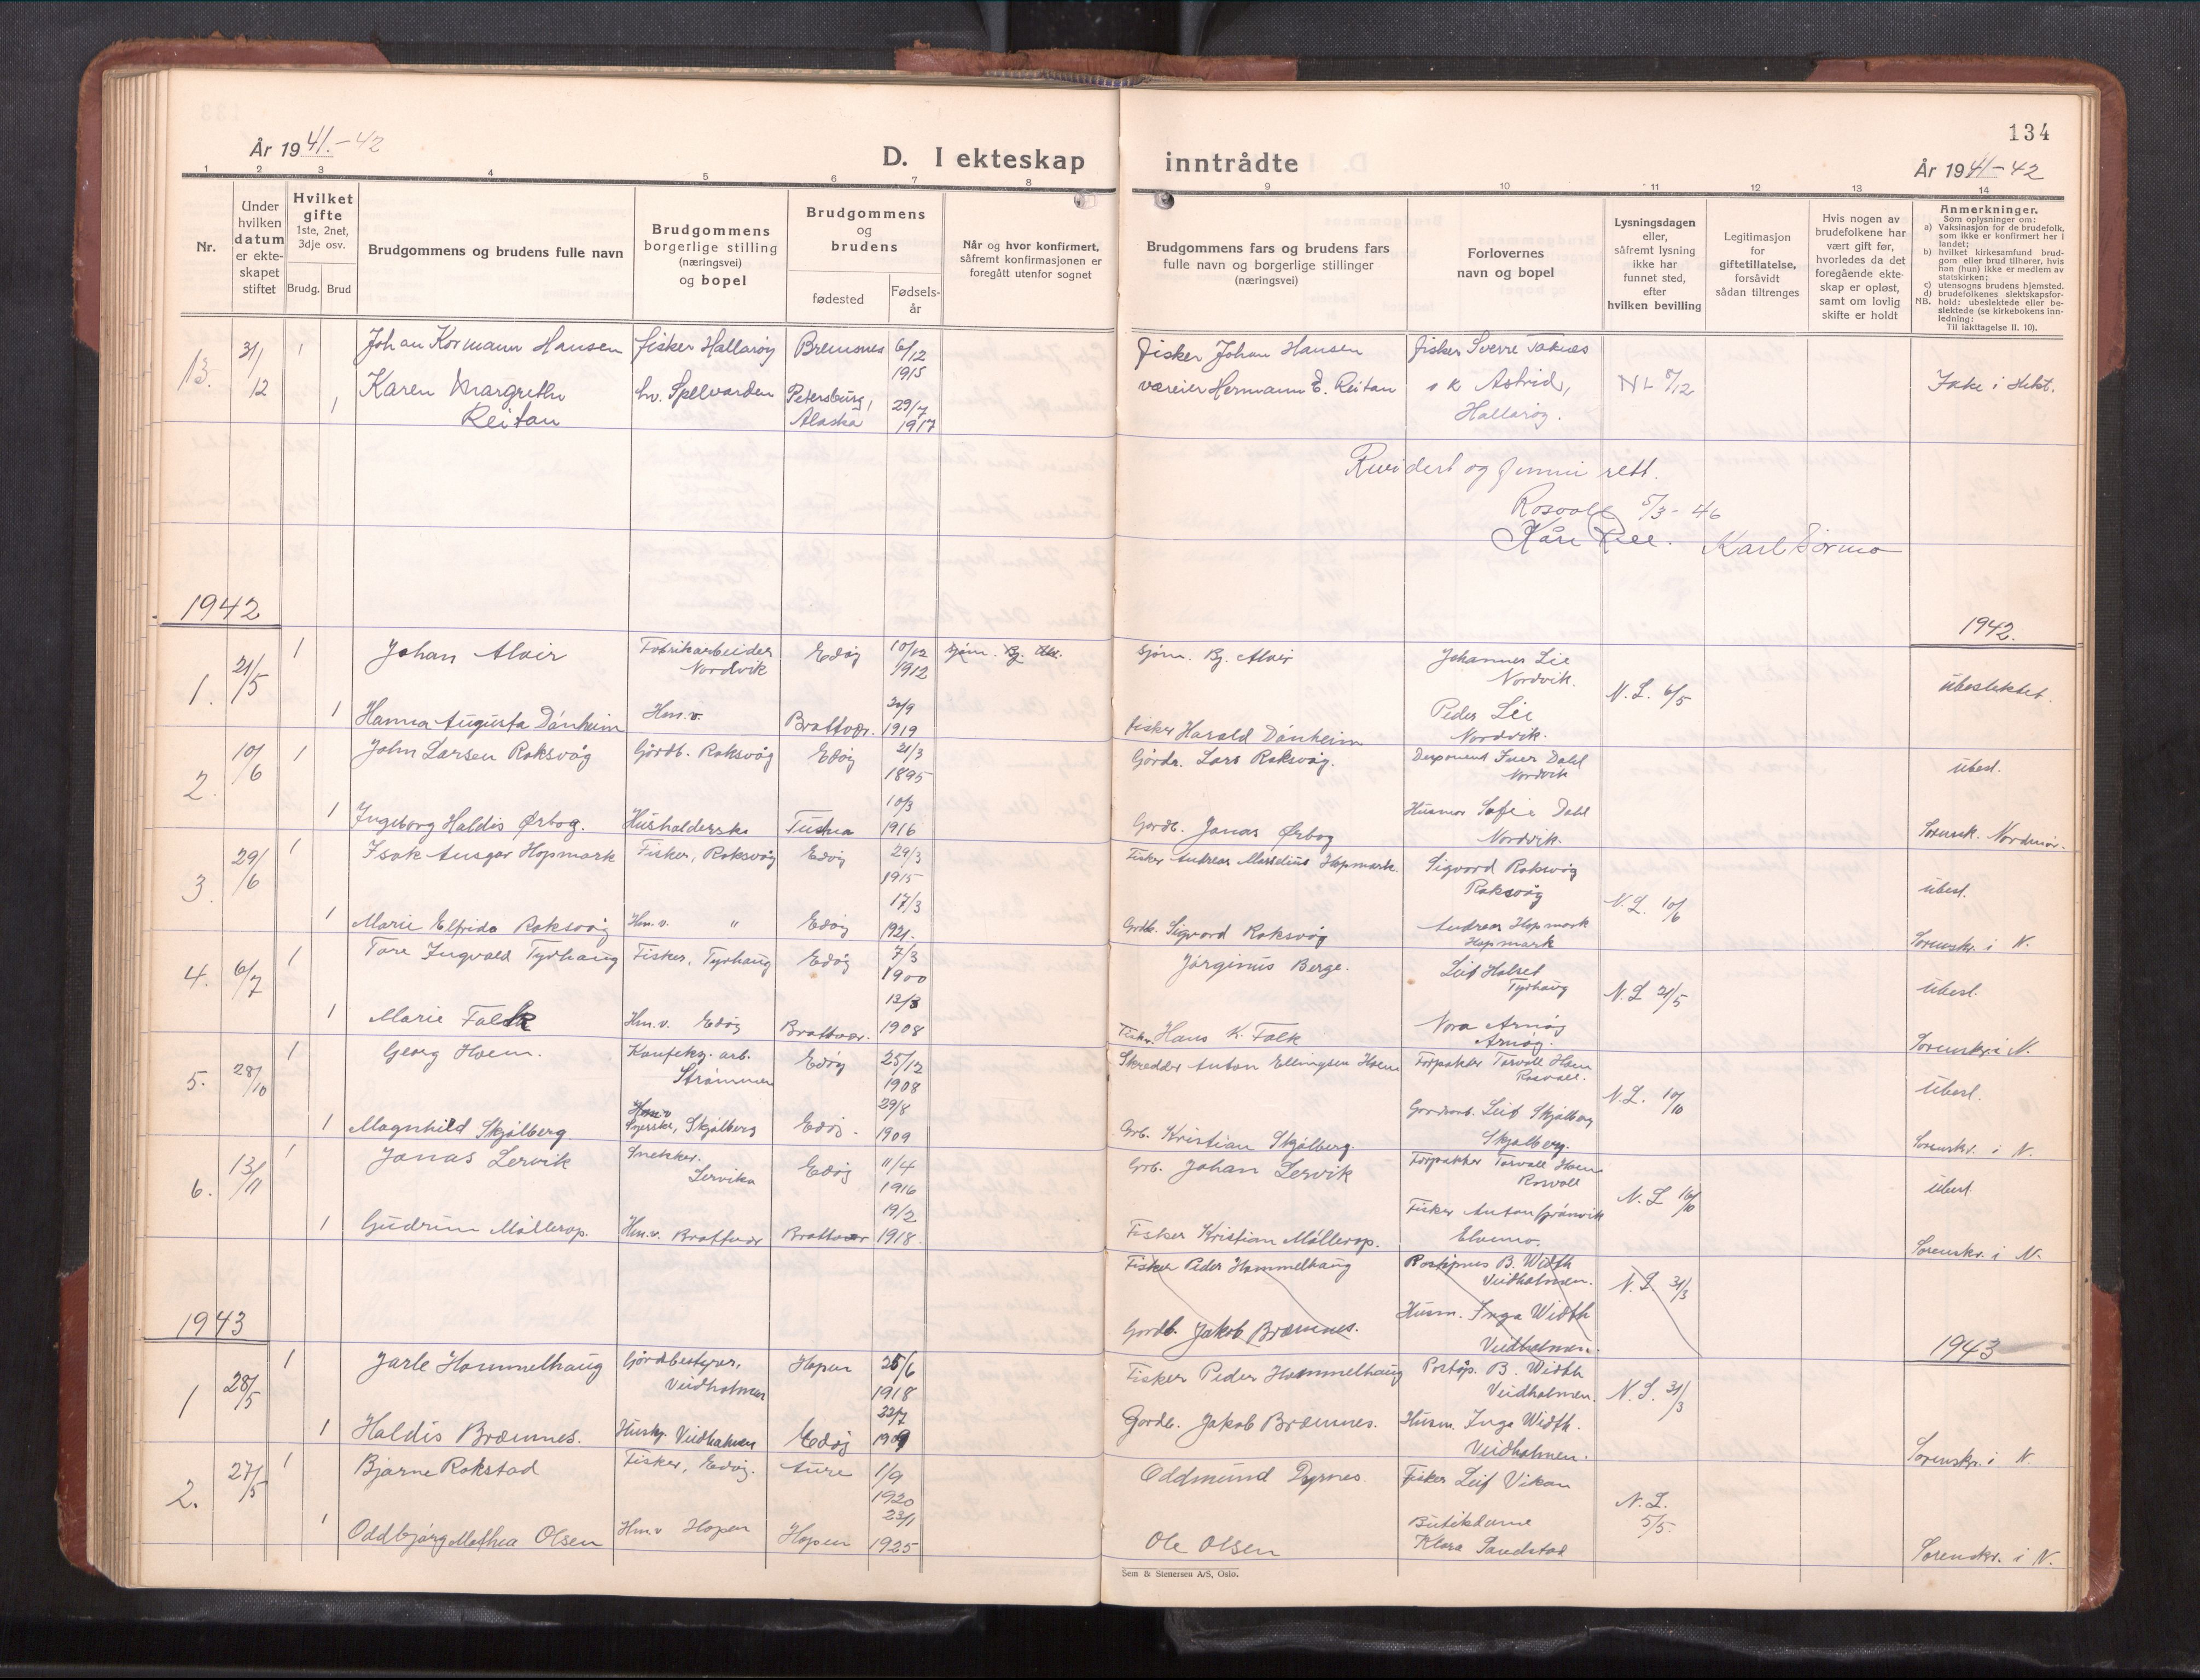 134
År 1941.-42
D. I ekteskap inntrådte
År 1941-42
1 2 3 4 5 6 7 8 9 10 11 12 13 14
Nr.
Under hvilken datum er ekteskapet stiftet
Hvilket gifte 1ste, 2net, 3dje osv.
Brudg. Brud
Brudgommens og brudens fulle navn
Brudgommens borgerlige stilling (næringsvei) og bopel
Brudgommens og brudens
fødested
Fødselsår
Når og hvor konfirmert, såfremt konfirmasjonen er foregått utenfor sognet
Brudgommens fars og brudens fars fulle navn og borgerlige stillinger (næringsvei)
Forlovernes navn og bopel
Lysningsdagen eller, såfremt lysning ikke har funnet sted, efter hvilken bevilling
Legitimasjon for giftetillatelse, forsåvidt sådan tiltrenges
Hvis nogen av brudefolkene har vært gift før, hvorledes da det foregående ekteskap er opløst, samt om lovlig skifte er holdt
Anmerkninger.
Som oplysninger om:
a) Vaksinasjon for de brudefolk, som ikke er konfirmert her i landet;
b) hvilket kirkesamfund brudgom eller brud tilhører, hvis han (hun) ikke er medlem av statskirken;
c) utensogns brudens hjemsted.
d) brudefolkenes slektskapsforhold: ubeslektede eller beslektede (se kirkebokens innledning:
NB. Til iakttagelse II. 10).
13. 31/12 1 Johan Kormann Hansen fisker Hallarøy Bremsnes 6/12 1915 fisker Johan Hansen fisker Sverre Taknes
1 Karen Margrethe Reitan hv. Spelvarden Petersburg, Alaska 29/7 1917 væreier Hermann E. Reitan Astrid, Hallarøy. NL 8/12 Ikke i slekt.
Revidert og funnet rett.
Rosvoll 5/3-46
Kåre Lie. Karl Sørmo
1942
1942.
1. 21/5 1 Johan Alvir Fabrikarbeider Nordvik Edøy 10/12 1912 Sjøm. Bj. Alvir Johannes Lie Nordvik. N.L. 6/5 ubeslektet.
1 Hanna Augusta Dánheim Hm.v. Brattvær. 1919 fisker Harald Dánheim Peder Lie Nordvik.
2. 10/6 1 John Larsen Roksvåg Gårdb. Roksvåg Edøy 21/3 1895 Gårdb. Lars Roksvåg. Disponent Iver Dahl Nordvik ubesl.
1 Ingeborg Haldis Ørbog. Husholderske Tustna 10/3 1916 Gårdb. Jonas Ørbog Husmor Sofie Dahl Nordvik. Sorensk. Nordmør.
3. 29/6 1 Isak Ansgar Hopmark Fisker, Roksvåg Edøy 29/3 1915 Fisker Andreas Marselius Hopmark. Sigvard Roksvåg Roksvåg N.L. 10/6 ubesl.
1 Marie Elfrida Roksvåg Hm.v. " Edøy 17/3 1921. Grdb. Sigvard Roksvåg Andreas Hopmark Hopmark Sorenskr. i N.
4. 6/7 1 Tore Ingvald Tyrhaug Fisker, Tyrhaug Edøy 7/3 1900 Jørginus Berge. Leif Holset Tyrhaug N.L. 21/5 ubesl.
1 Marie Falk Hm.v. Edøy Brattvær. 1908 Fisker Hans K. Falk Nora Arnøy Arnøy. Sorenskr. i N.
5. 28/10 1 Georg Hoem. Konfeksj. arb. Strømmen Edøy 25/12 1908 Skredder Anton Ellingsen Hoem Forpakter Torvall Hoem Rosvoll. N.L. 10/10 ubesl.
1 Magnhild Skjølberg. Skjølberg Edøy. 29/8 1909 Grb. Kristian Skjølberg. Gårdsarb. Leif Skjølberg Skjølberg. Sorenskr. i N.
6. 13/11 1 Jonas Lervik Snekker. Lervika Edøy 11/4 1916 Grb. Johan Lervik Forpakter Torvall Hoem Rosvoll N.L. 16/10 ubesl.
1 Gudrun Møllerop. Hm.v. Brattvær Brattvær 19/2 1918. Fisker Kristian Møllerop. Fisker Anton Grønvik Elvemo. Sorenskr. i N.
Fisker Peder Hammelhaug B. Width Veidholmen. N.L. 31/3
Gårdb. Jakob Bræmnes. Husm. Inga Width Veidholmen.
1943
1943
1 28/5 1 Jarle Hammelhaug Gårdbestyrer, Veidholmen Hopen 25/6 1918 Fisker Peder Hammelhaug Poståp. B. Width Veidholmen. N.L. 31/3
1 Haldis Bræmnes. Hushj. Veidholmen Edøy 22/7 1909 Gårdb. Jakob Bræmnes. Husm. Inga Width. Veidholmen. Sorenskr. i N.
2. 27/5 1 Bjarne Rokstad Fisker, Edøy. Aure 1/9 1920 Oddmund Dyrnes. Fisker Leif Vikan N.L. 5/5.
1 Oddbjørg Mathea Olsen Hm.v Hopen Hopen 23/1 1925 Ole Olsen Butikdame Klara Sandstad Sorenskr. i N.
Sem & Stenersen A/S, Oslo.